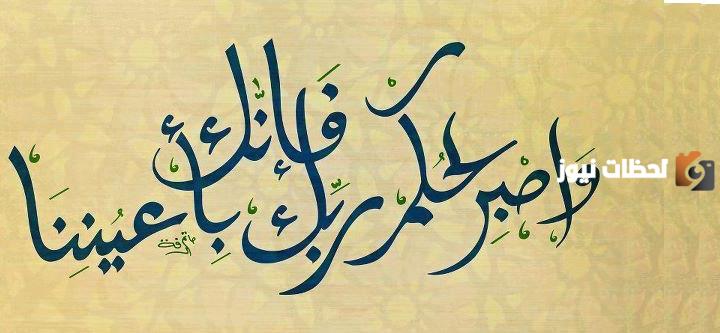 وَاصْبِرْ لِحُكْمِ رَبِّكَ فَإِنَّكَ بِأَعْيُنِنَا
لحظات نيوز